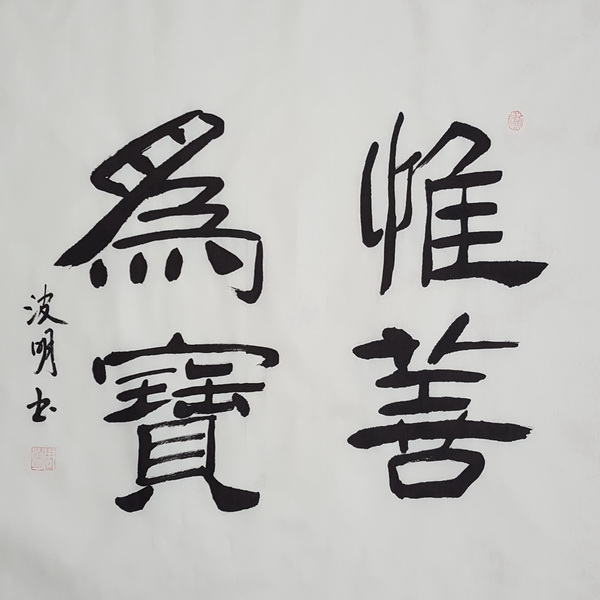 惟善
為寶
波明书